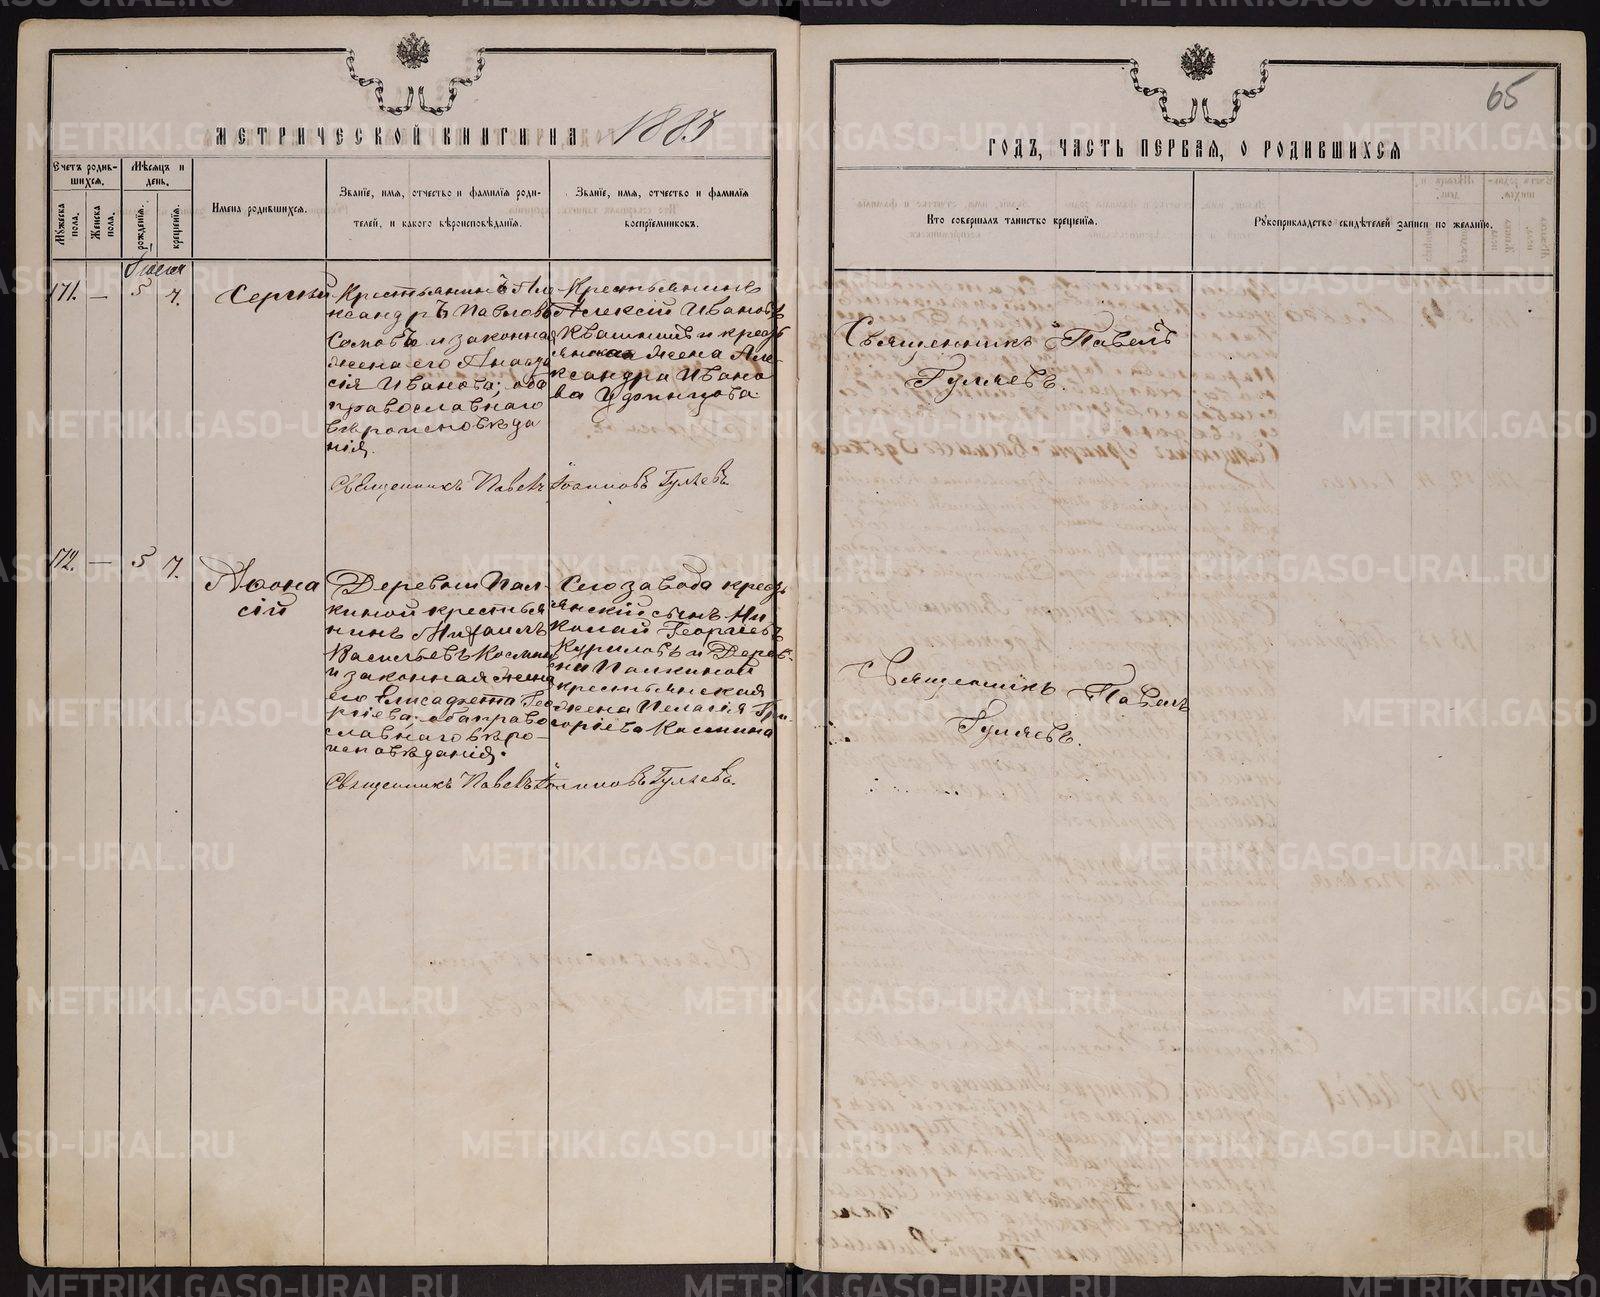 МЕТРИЧЕСКОЙ КНИГИ НА 1883
Счетъ родившихся.
Мужеска пола.
Женска пола.
Мѣсяцъ и день.
рожденія.
крещенія.
Имена родившихся.
Званіе, имя, отчество и фамилія роди-
телей, и какого вѣроисповѣданія.
Званіе, имя, отчество и фамилія
воспріемниковъ.
171. — 5 7.
Сергій
Крестьянинъ Але
ксандръ Павловъ
и законная
жена его Анаста
сія Иванова; оба
православнаго
вѣроисповѣда
нія.
Крестьянинъ
Алексій Ивановъ
Квашнинъ и кресть
янская жена Але
ксандра Ивано
ва Удинцова.
Священникъ Павелъ Іоанновъ Гуляевъ.
172. — 5 7.
Афона
сій
Деревни Пал
киной крестья
нинъ Михаилъ
Васильевъ Космин
и законная жена
его Елисавета Гео
ргіева; оба право
славнаго вѣро-
исповѣданія.
Сего завода кресть
янскій сынъ Ни
колай Георгіевъ
Куриловъ и Дерев-
ни Палкиной
крестьянская
жена Пелагія Гри
горіева Космина
Священникъ Павелъ Іоанновъ Гуляевъ.
65
ГОДЪ, ЧАСТЬ ПЕРВАЯ, О РОДИВШИХСЯ
Кто совершалъ таинство крещенія.
Рукоприкладство свидѣтелей записи по желанію.
Священникъ Павелъ
Гуляевъ.
Священникъ Павелъ
Гуляевъ.
METRIKI.GASO-URAL.RU